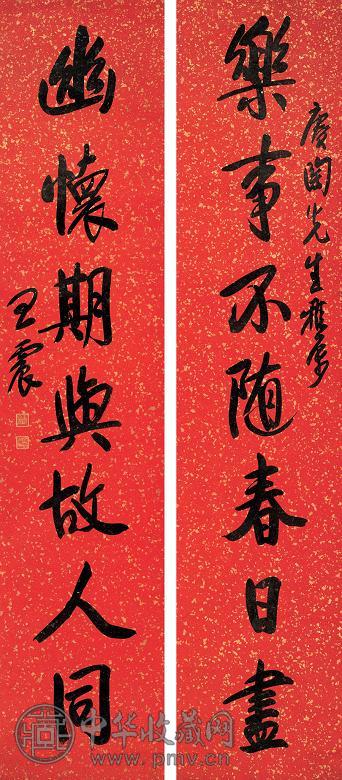 樂事不随春日盡
賡陶先生雅屬
幽懷期與故人同
王震
中华收藏网
www.pmve.cn